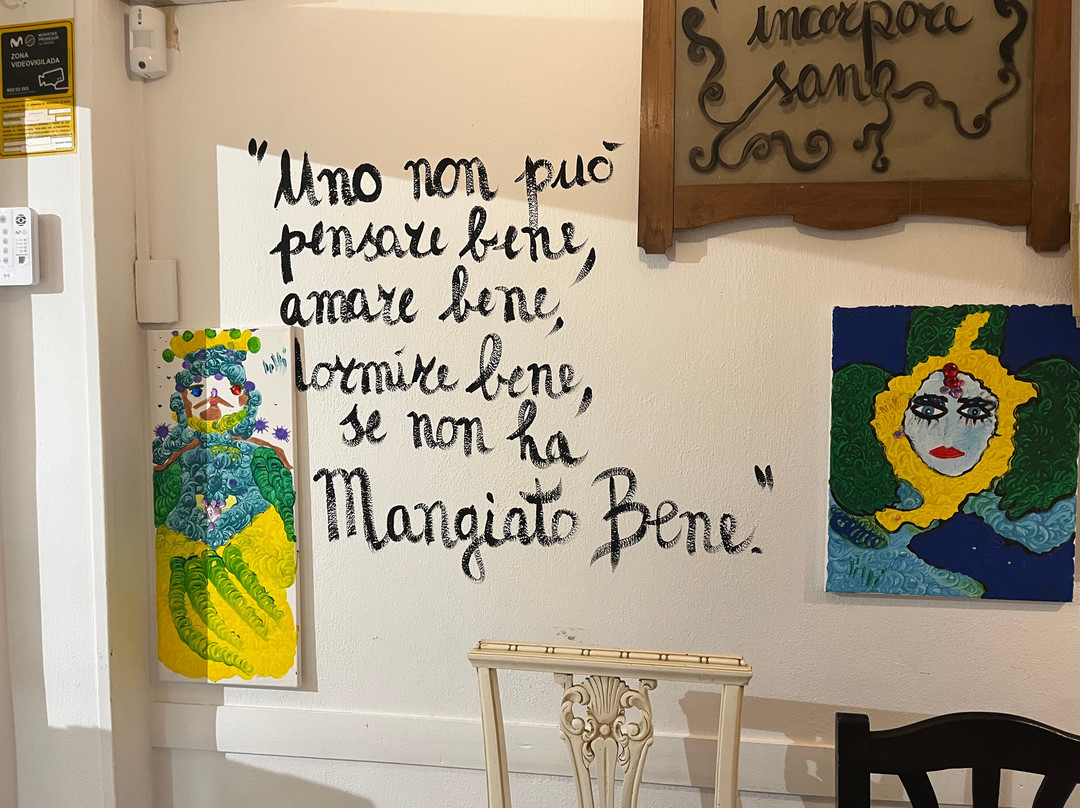 MOVISTAR
PROSEGUR
ALARMAS
ZONA
VIDEOVIGILADA
incorpore
sano
"Uno non può
pensare bene,
amare bene,
dormire bene,
se non ha
Mangiato Bene."